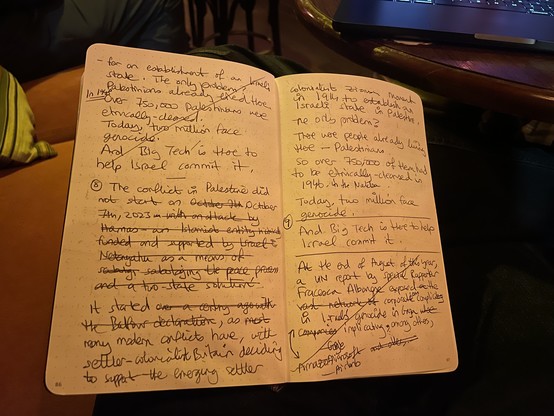 - for an establishment of an Israeli
state. The only problem?
Palestinians already lived there
In 1948
Over 750,000 Palestinians were
ethnically-cleansed.
Today, two million face
genocide.
And Big Tech is there to
help Israel commit it.
8 The conflict in Palestine did
not start on October 7th October
7th, 2023 - with an attack by
Hamas - an Islamist entity
funded and supported by Israel's
Netanyahu as a means of
sabotaging the peace process
and a two-state solution.
It started over a century ago with
the Balfour declaration, as most
many modern conflicts have, with
settler-colonialist Britain deciding
to support the emerging settler
88
colonialist Zionist movement
in 1917 to establish an
Israeli state in Palestine.
The only problem?
There were people already living
there - Palestinians
So over 750,000 of them had
to be ethnically-cleansed in
1948. in the Nakba.
Today, two million face
genocide.
9 And Big Tech is there to help
Israel commit it.
At the end of August of this year,
a UN report by Special Rapporteur
Francesca Albanese exposed the
vast network of corporate
in Israel's genocide in Gaza
companies implicating, among others,
Microsoft and others
Airbnb